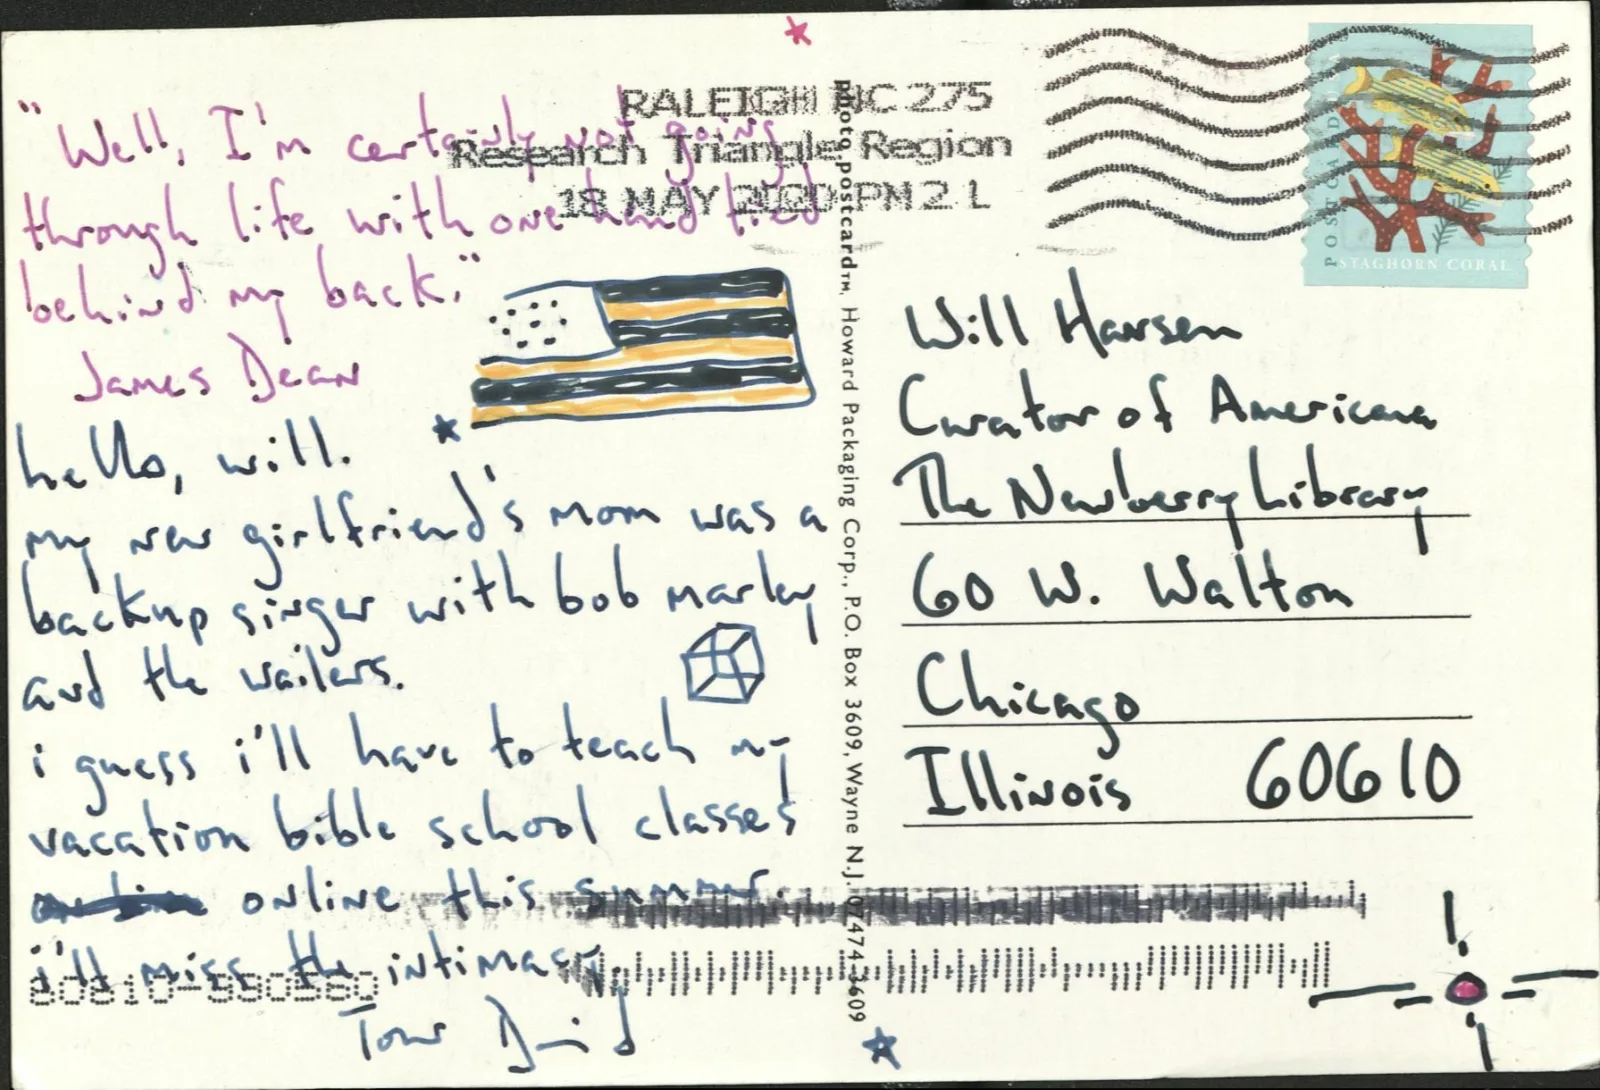 "Well, I'm certainly not going
through life with one hand tied
behind my back."
James Dean
hello, will.
my new girlfriend's mom was a
backup singer with bob marley
and the wailers.
i guess i'll have to teach my
vacation bible school classes
online this summer.
i'll miss the intimacy.
Your David
RALEIGH NC 275
Research Triangle Region
18 MAY 2020 PM 2 L
photo postcard™, Howard Packaging Corp., P.O. Box 3609, Wayne N.J. 07474-3609
POSTCARD
STAGHORN CORAL
Will Hansen
Curator of Americana
The Newberry Library
60 W. Walton
Chicago
Illinois 60610